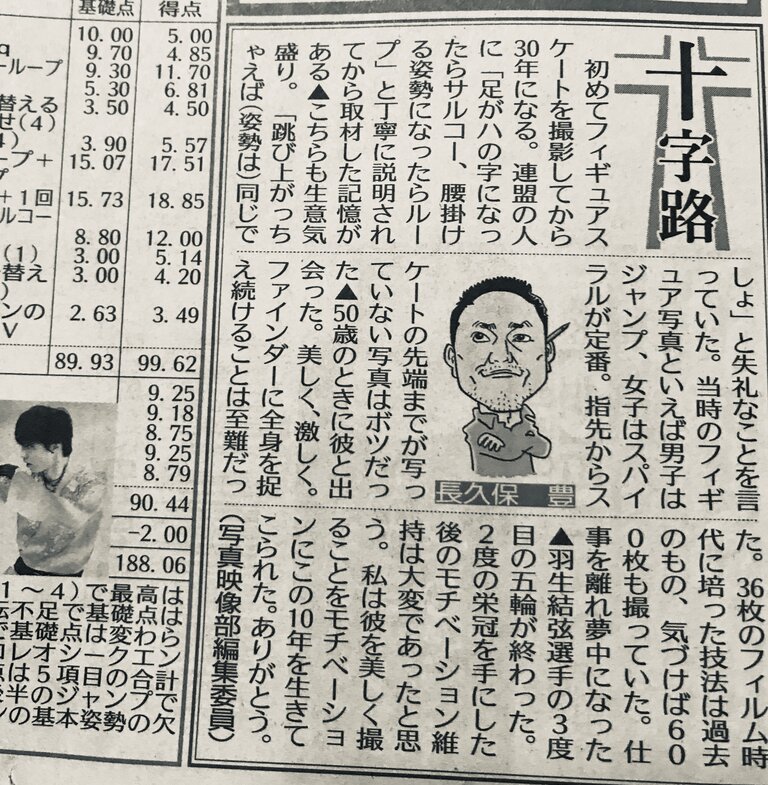 十字路
初めてフィギュアス
ケートを撮影してから
30年になる。連盟の人
に「足がハの字になっ
たらサルコー、腰掛け
る姿勢になったらルー
プ」と丁寧に説明され
てから取材した記憶が
ある▲こちらも生意気
盛り。「跳び上がっち
ゃえば(姿勢は)同じで
しょ」と失礼なことを言
っていた。当時のフィギ
ュア写真といえば男子は
ジャンプ、女子はスパイ
ラルが定番。指先からス
ケートの先端までが写っ
ていない写真はボツだっ
た▲50歳のときに彼と出
会った。美しく、激しく。
ファインダーに全身を捉
え続けることは至難だっ
長久保 豊
た。36枚のフィルム時
代に培った技法は過去
のもの、気づけば60
0枚も撮っていた。仕
事を離れ夢中になった
▲羽生結弦選手の3度
目の五輪が終わった。
2度の栄冠を手にした
後のモチベーション維
持は大変であったと思
う。私は彼を美しく撮
ることをモチベーショ
ンにこの10年を生きて
こられた。ありがとう。
(写真映像部編集委員)
基礎点 得点
10.00 5.00
9.70 4.85
ーループ 9.30 11.70
5.30 6.81
替える 3.50 4.50
せ(4)
4) 3.90 5.57
ープ+ 15.07 17.51
プ
+1回 15.73 18.85
ルコー
8.80 12.00
(1) 3.00 5.14
替え 3.00 4.20
)
ンの 2.63 3.49
V
89.93 99.62
9.25
9.18
8.75
9.25
8.79
90.44
-2.00
188.06